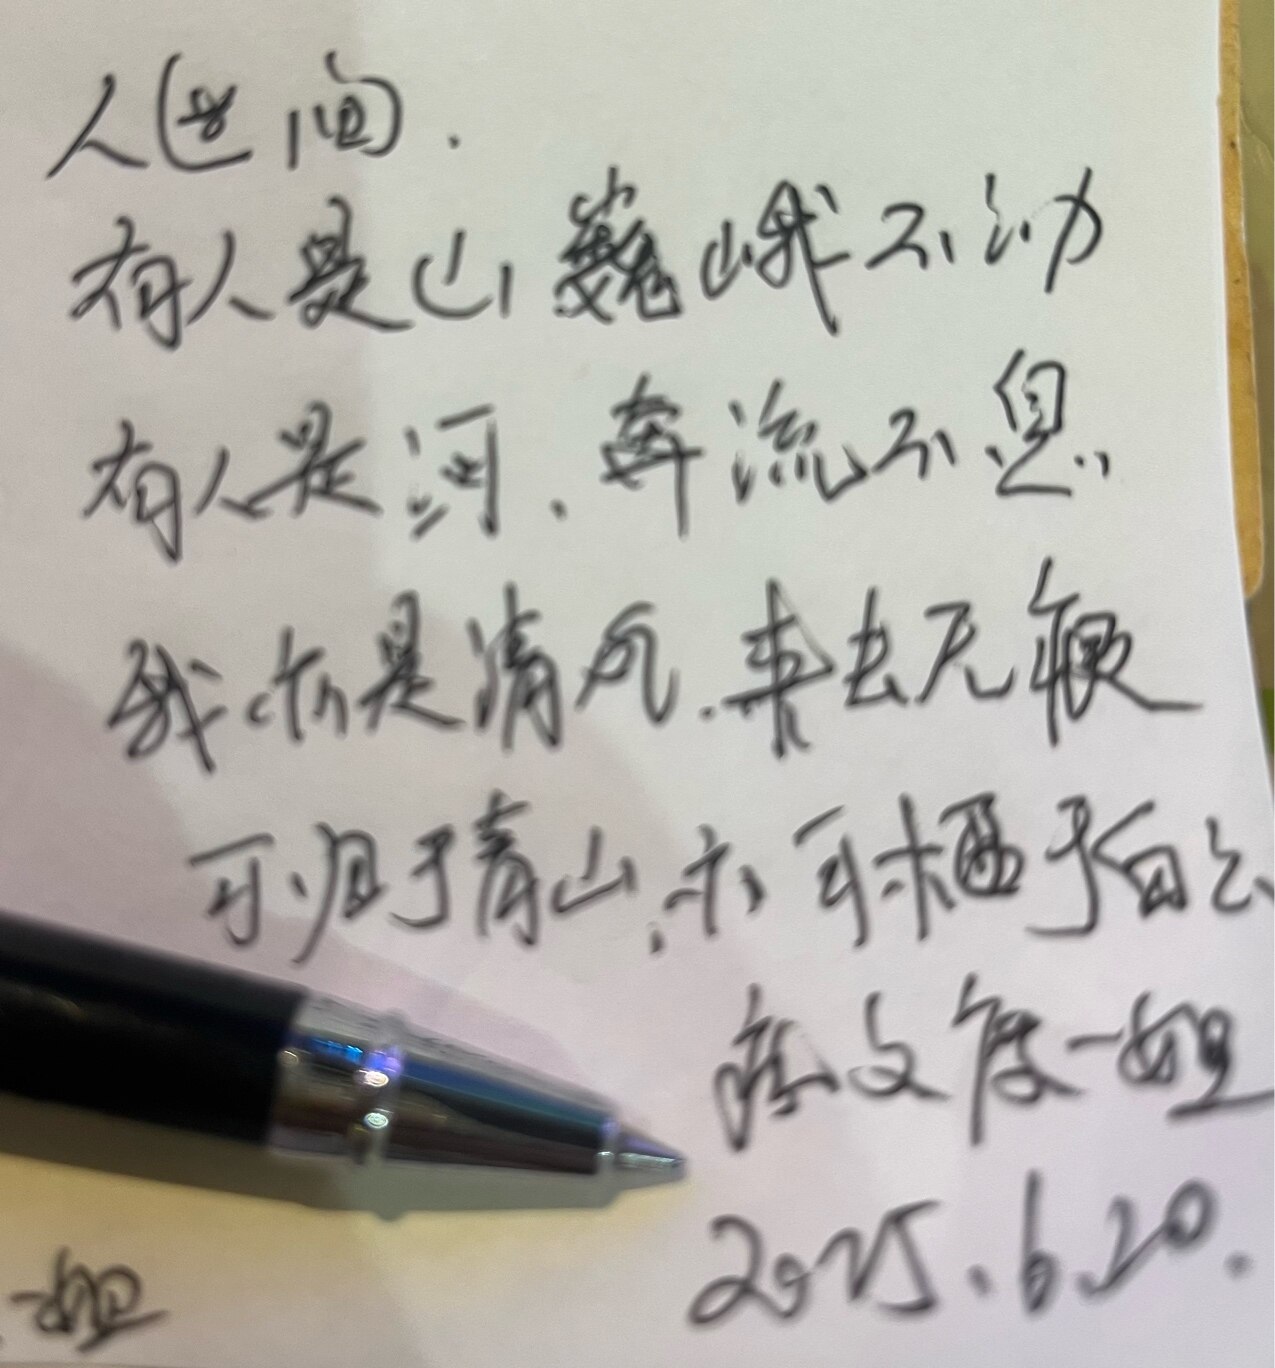 人世间.
有人是山 巍峨不动
有人是河. 奔流不息.
我亦是清风.来去无痕
可归于青山,亦可栖于白云
文 一姐
2025.6.20.
一姐